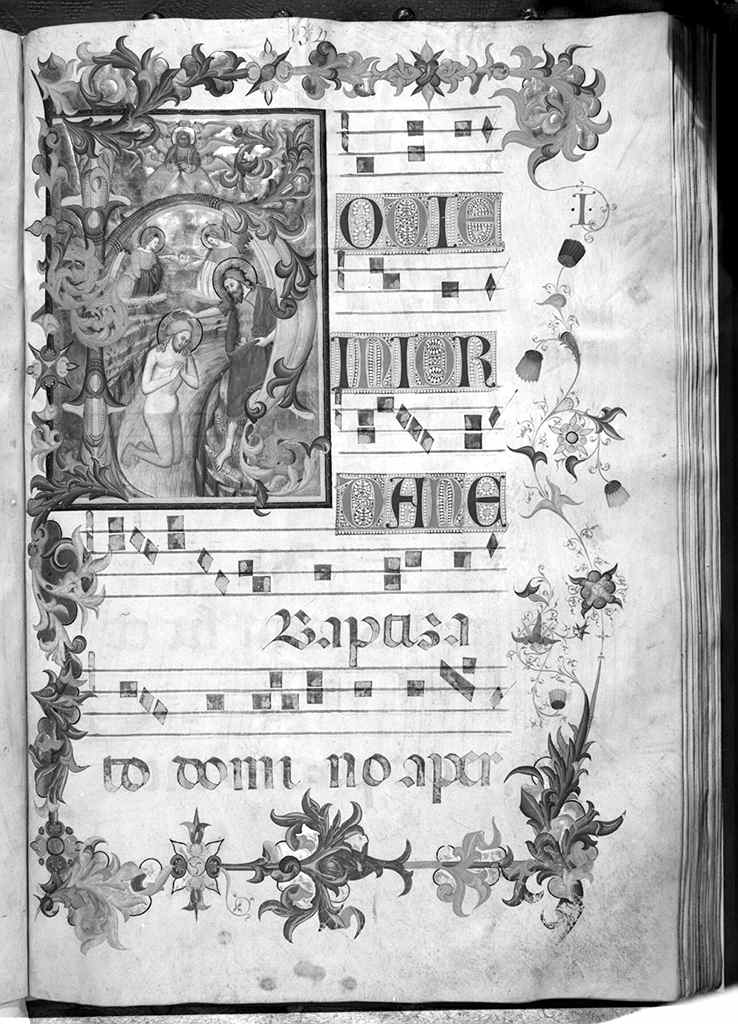 HODIE
IN IOR
DANE
Baptiza
to domi no aper
·I·